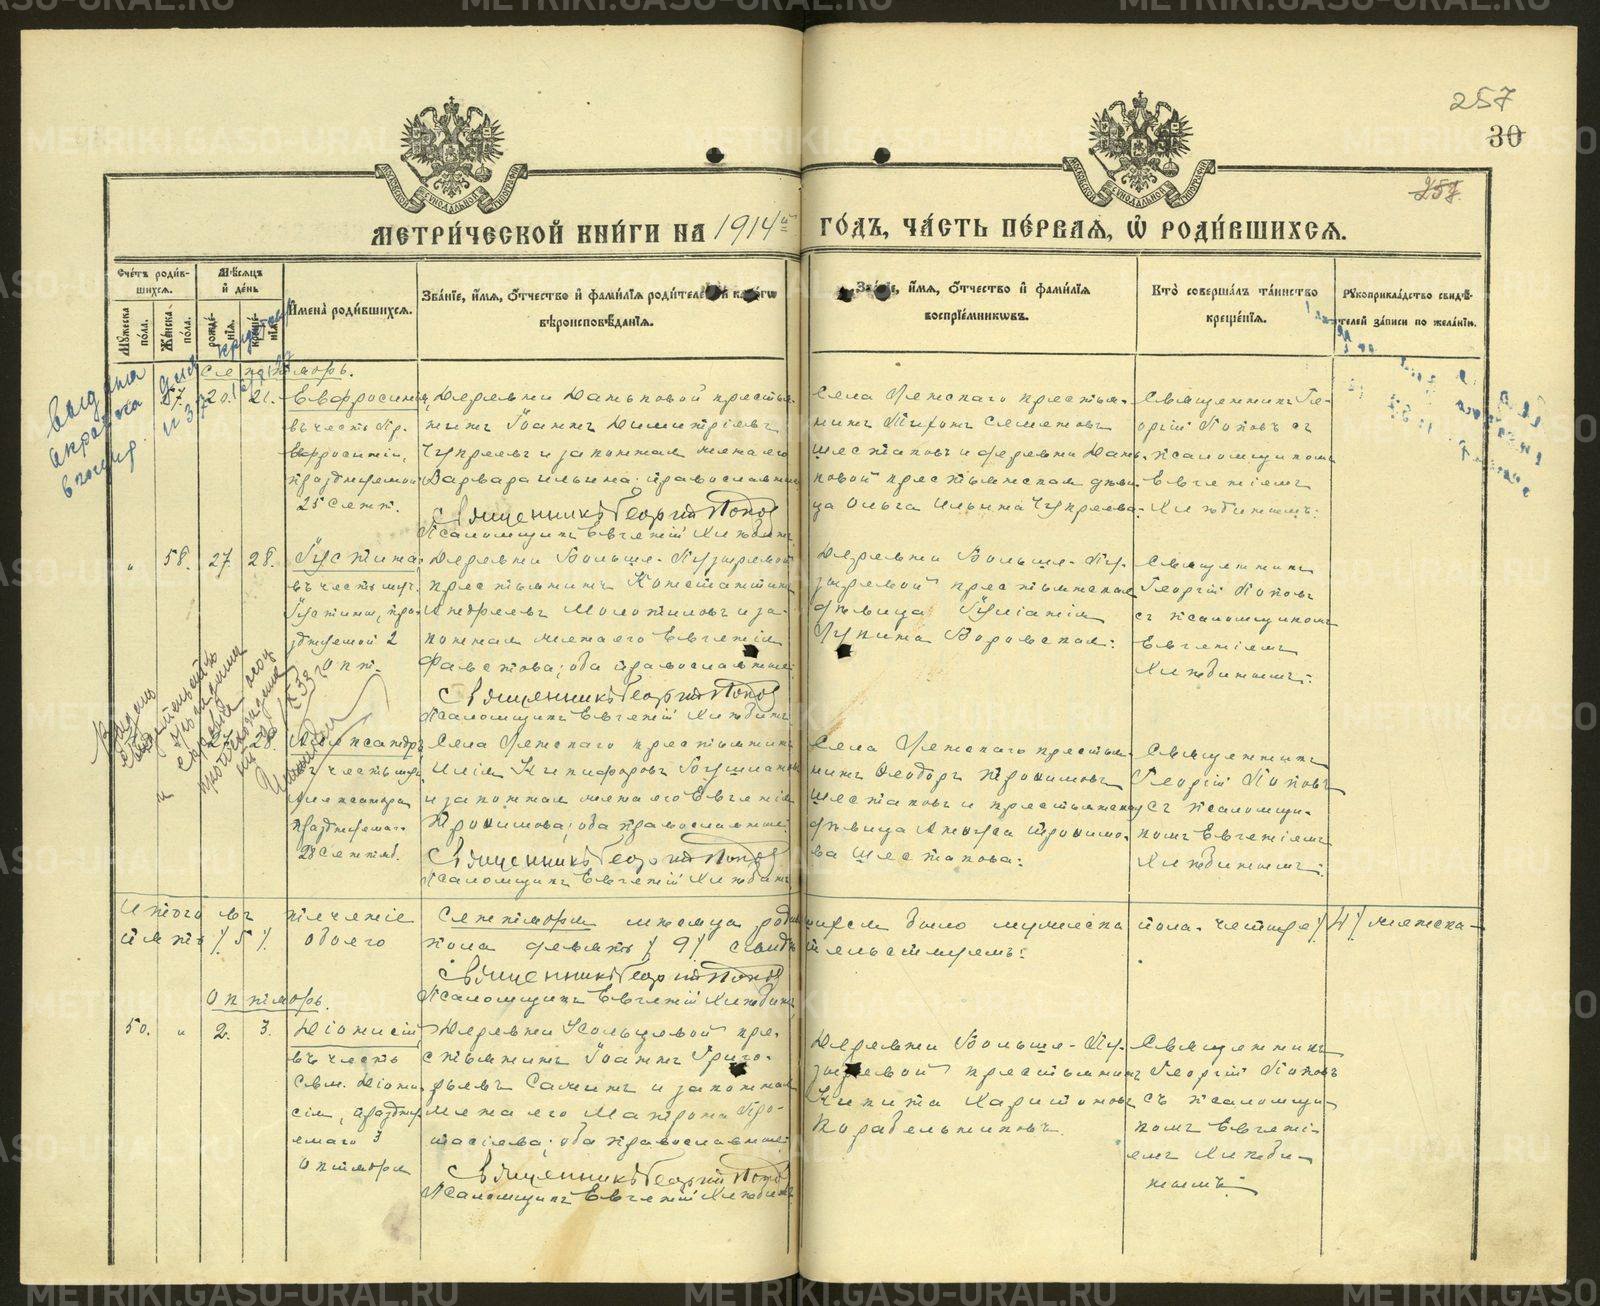 257
30
257.
МЕТРИ́ЧЕСКОЙ КНИ́ГИ НА 1914й ГО́ДЪ, ЧА́СТЬ ПЕ́РВАЯ, Ѡ҆ РОДИ́ВШИХСЯ.
Сче́тъ роди́в-
шихся.
Мѣ́сяцъ
и҆ де́нь
Му́жеска по́ла.
Же́нска по́ла.
рожде́-
нія.
креще́-
нія.
И҆мена̀ роди́вшихся.
Зва́нїе, и҆́мя, ѻ҆́тчество и҆ фами́лїя роди́телей
вѣроисповѣ́данїя.
Зва́нїе, и҆́мя, ѻ҆́тчество и҆ фами́лїя
воспрїе́мниковъ.
Кто̀ соверша́лъ та́инство
креще́нїя.
Рукоприкла́дство свидѣ́-
телей за́писи по жела́нїю.
Сентябрь.
57. 20. 21.
Евфросинія,
въ честь пр.
Евфросиніи,
празднуемой
25 сент.
Деревни Даньковой крестья-
нинъ Іоаннъ Димитріевъ
Чупреевъ и законная жена его
Варвара Ильина; православные
Священникъ Георгій Поповъ
Псаломщикъ Евгеній Хлѣбинъ
Села Ленскаго крестья-
нинъ Тихонъ Семеновъ
Шестаковъ и деревни Дань-
ковой крестьянская дѣви-
ца Ольга Ильина Чупреева.
Священникъ Ге-
оргій Поповъ съ
псаломщикомъ
Евгеніемъ
Хлѣбинымъ.
" 58. 27. 28.
Іустина
въ честь муч.
Іустины, пра-
зднуемой 2
Окт.
Деревни Больше-Пузыревой
крестьянинъ Константинъ
Андреевъ Молотиловъ и за-
конная жена его Евгенія
Фавстова; оба православные.
Священникъ Георгій Поповъ
Псаломщикъ Евгеній Хлѣбинъ
Деревни Больше-Пу-
зыревой крестьянская
дѣвица Іуліанія
Лупина Боровская:
Священникъ
Георгій Поповъ
съ псаломщикомъ
Евгеніемъ
Хлѣбинымъ.
27. 28.
Александръ
въ честь муч.
Александра
празднуемаго
28 Сентяб.
Села Ленскаго крестьянинъ
Илія Никифоровъ
и законная жена его Евгенія
Трофимова; оба православные.
Священникъ Георгій Поповъ
Псаломщикъ Евгеній Хлѣбинъ
Села Ленскаго крестья-
нинъ Ѳеодоръ Трофимовъ
Шестаковъ и крестьянская
дѣвица Анфиса Трофимо-
ва Шестакова:
Священникъ
Георгій Поповъ
съ псаломщи-
комъ Евгеніемъ
Хлѣбинымъ:
Итого въ теченіе Сентября мѣсяца родившихся было мужеска пола четыре /4/ женска-
пять /5/ обоего пола девять /9/ свидѣтельствуемъ:
Священникъ Георгій Поповъ
Псаломщикъ Евгеній Хлѣбинъ
Октябрь.
50. " 2. 3.
Діонисій
въ честь
свм. Діони-
сія, праздну-
емаго 3
Октября
Деревни Кольцевой кре-
стьянинъ Іоаннъ Григо-
рьевъ Санинъ и законная
жена его Матрона Про-
тасіева; оба православные:
Священникъ Георгій Поповъ
Псаломщикъ Евгеній Хлѣбинъ
Деревни Больше-Пу-
зыревой крестьянинъ
Никита Харитоновъ
Корабельниковъ.
Священникъ
Георгій Поповъ
съ псаломщи-
комъ Евгені-
емъ Хлѣби-
нымъ.
METRIKI.GASO-URAL.RU